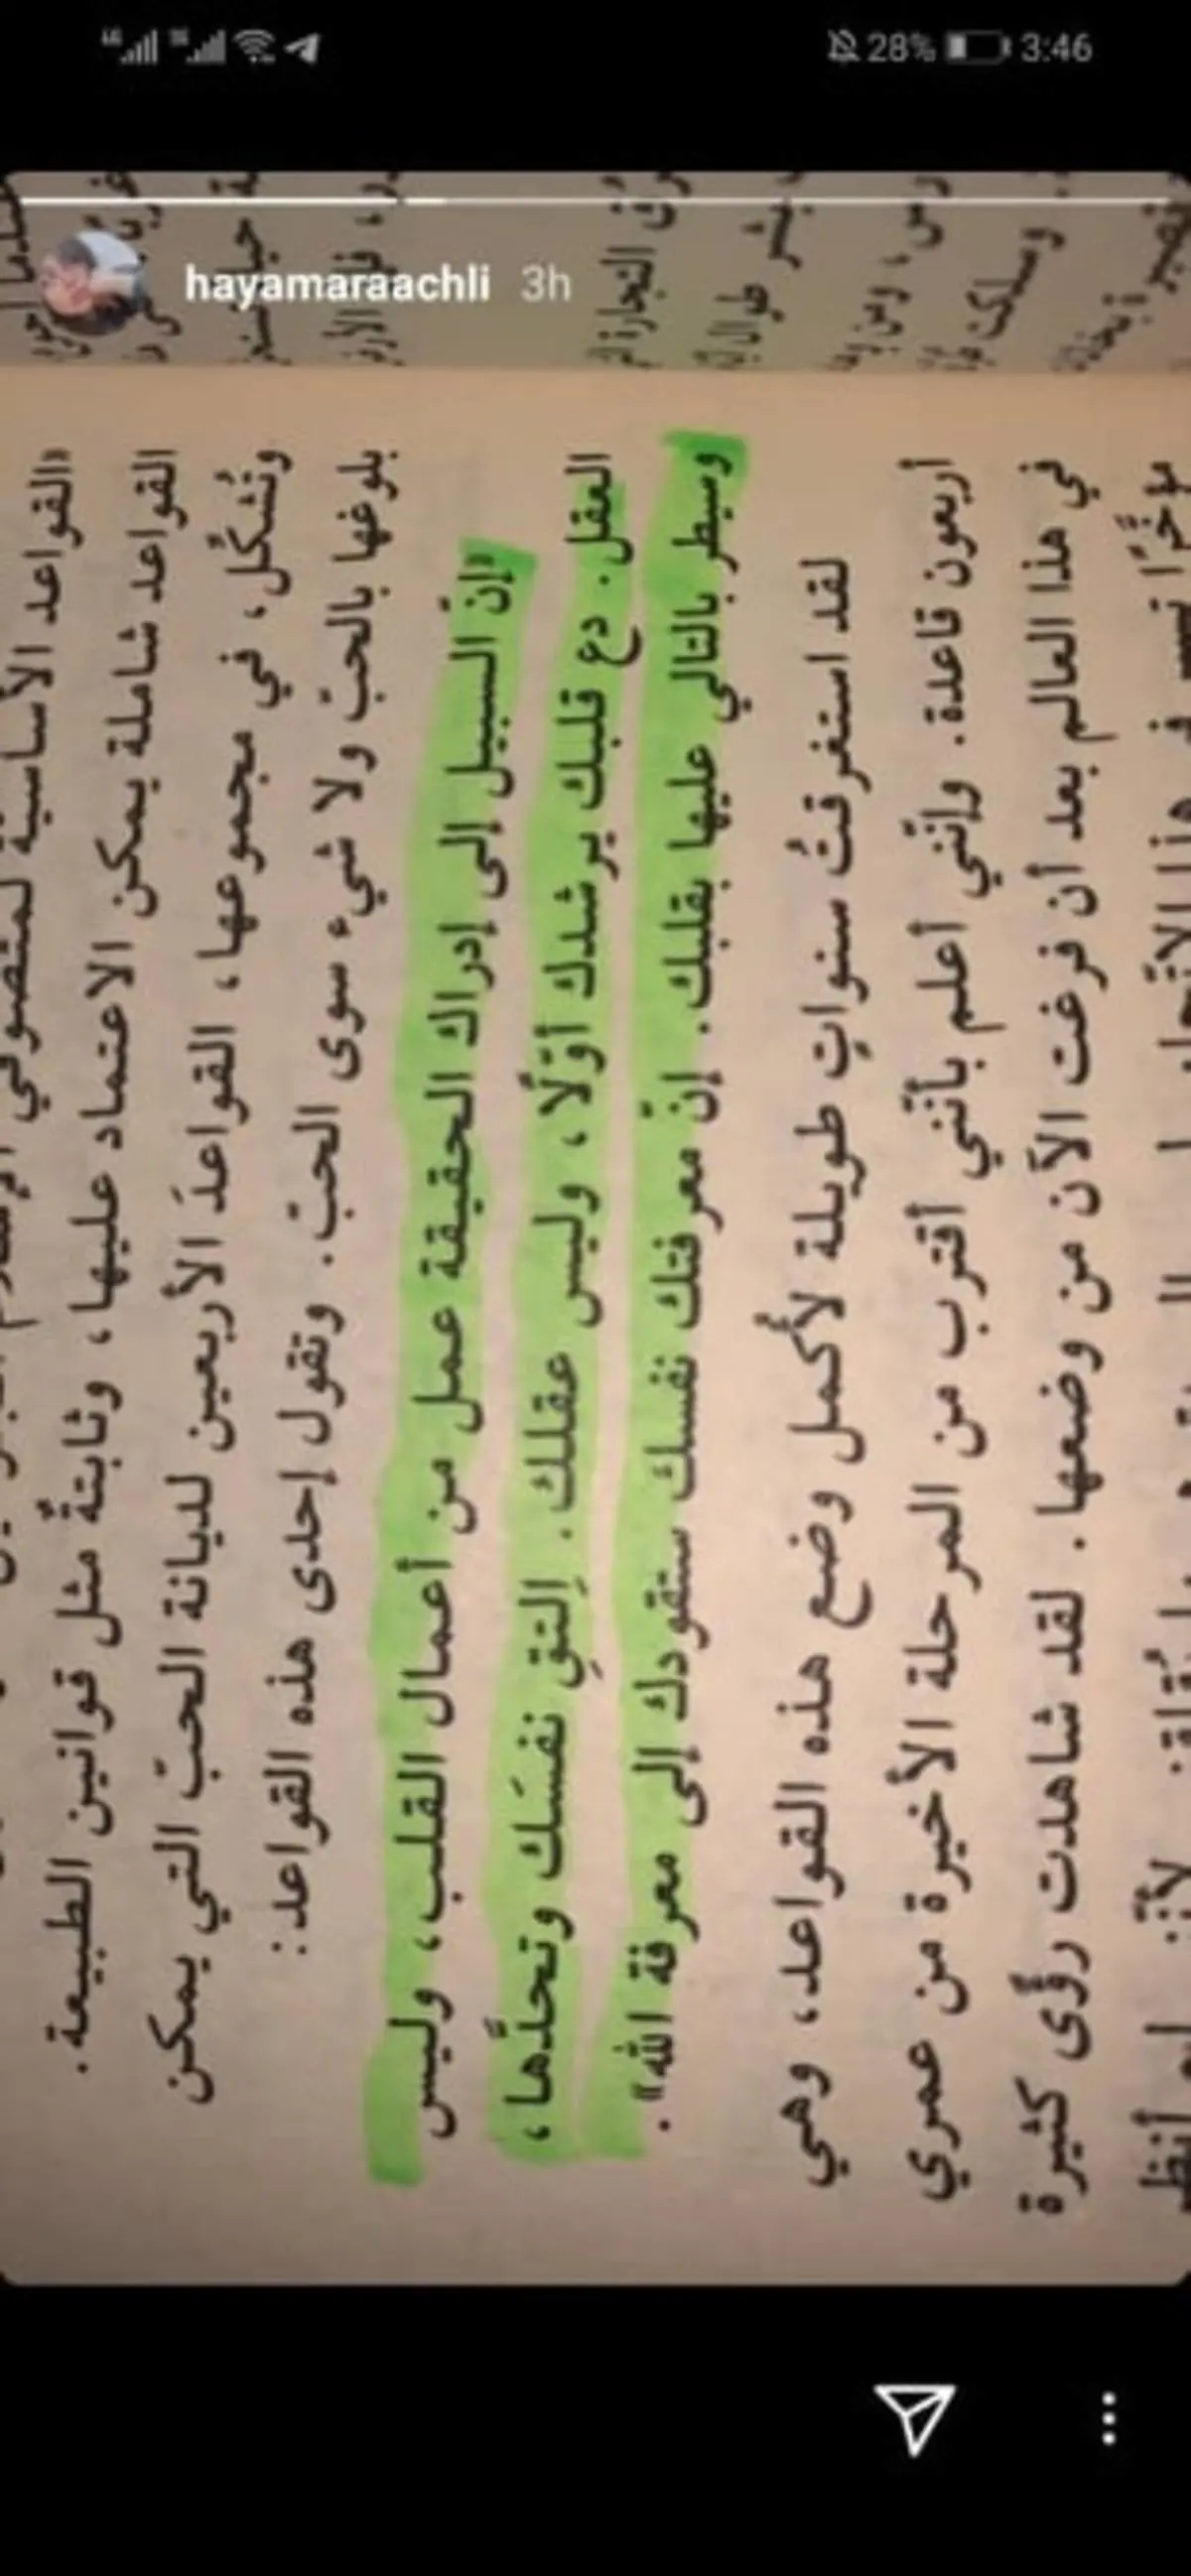 28% 3:46
hayamaraachli 3h
«القواعد الأساسية لمتصوفي
القواعد شاملة يمكن الاعتماد عليها، وثابتةٌ مثل قوانين الطبيعة.
وتُشكِّل، في مجموعها، القواعدَ الأربعين لديانة الحبّ التي يمكن
بلوغها بالحبّ ولا شيء سوى الحبّ. وتقول إحدى هذه القواعد:
«إنّ السبيل إلى إدراك الحقيقة عمل من أعمال القلب، وليس
العقل. دع قلبك يرشدك أوّلًا، وليس عقلك. اِلتقِ نفسَك وتحدَّها،
وسيطر بالتالي عليها بقلبك. إنّ معرفتك نفسك ستقودك إلى معرفة الله».
لقد استغرقتُ سنواتٍ طويلة لأُكمل وضع هذه القواعد، وهي
أربعون قاعدة. وإنّني أعلم بأنّني أقترب من المرحلة الأخيرة من عمري
في هذا العالم بعد أن فرغت الآن من وضعها. لقد شاهدت رؤًى كثيرة
مؤخَّرًا